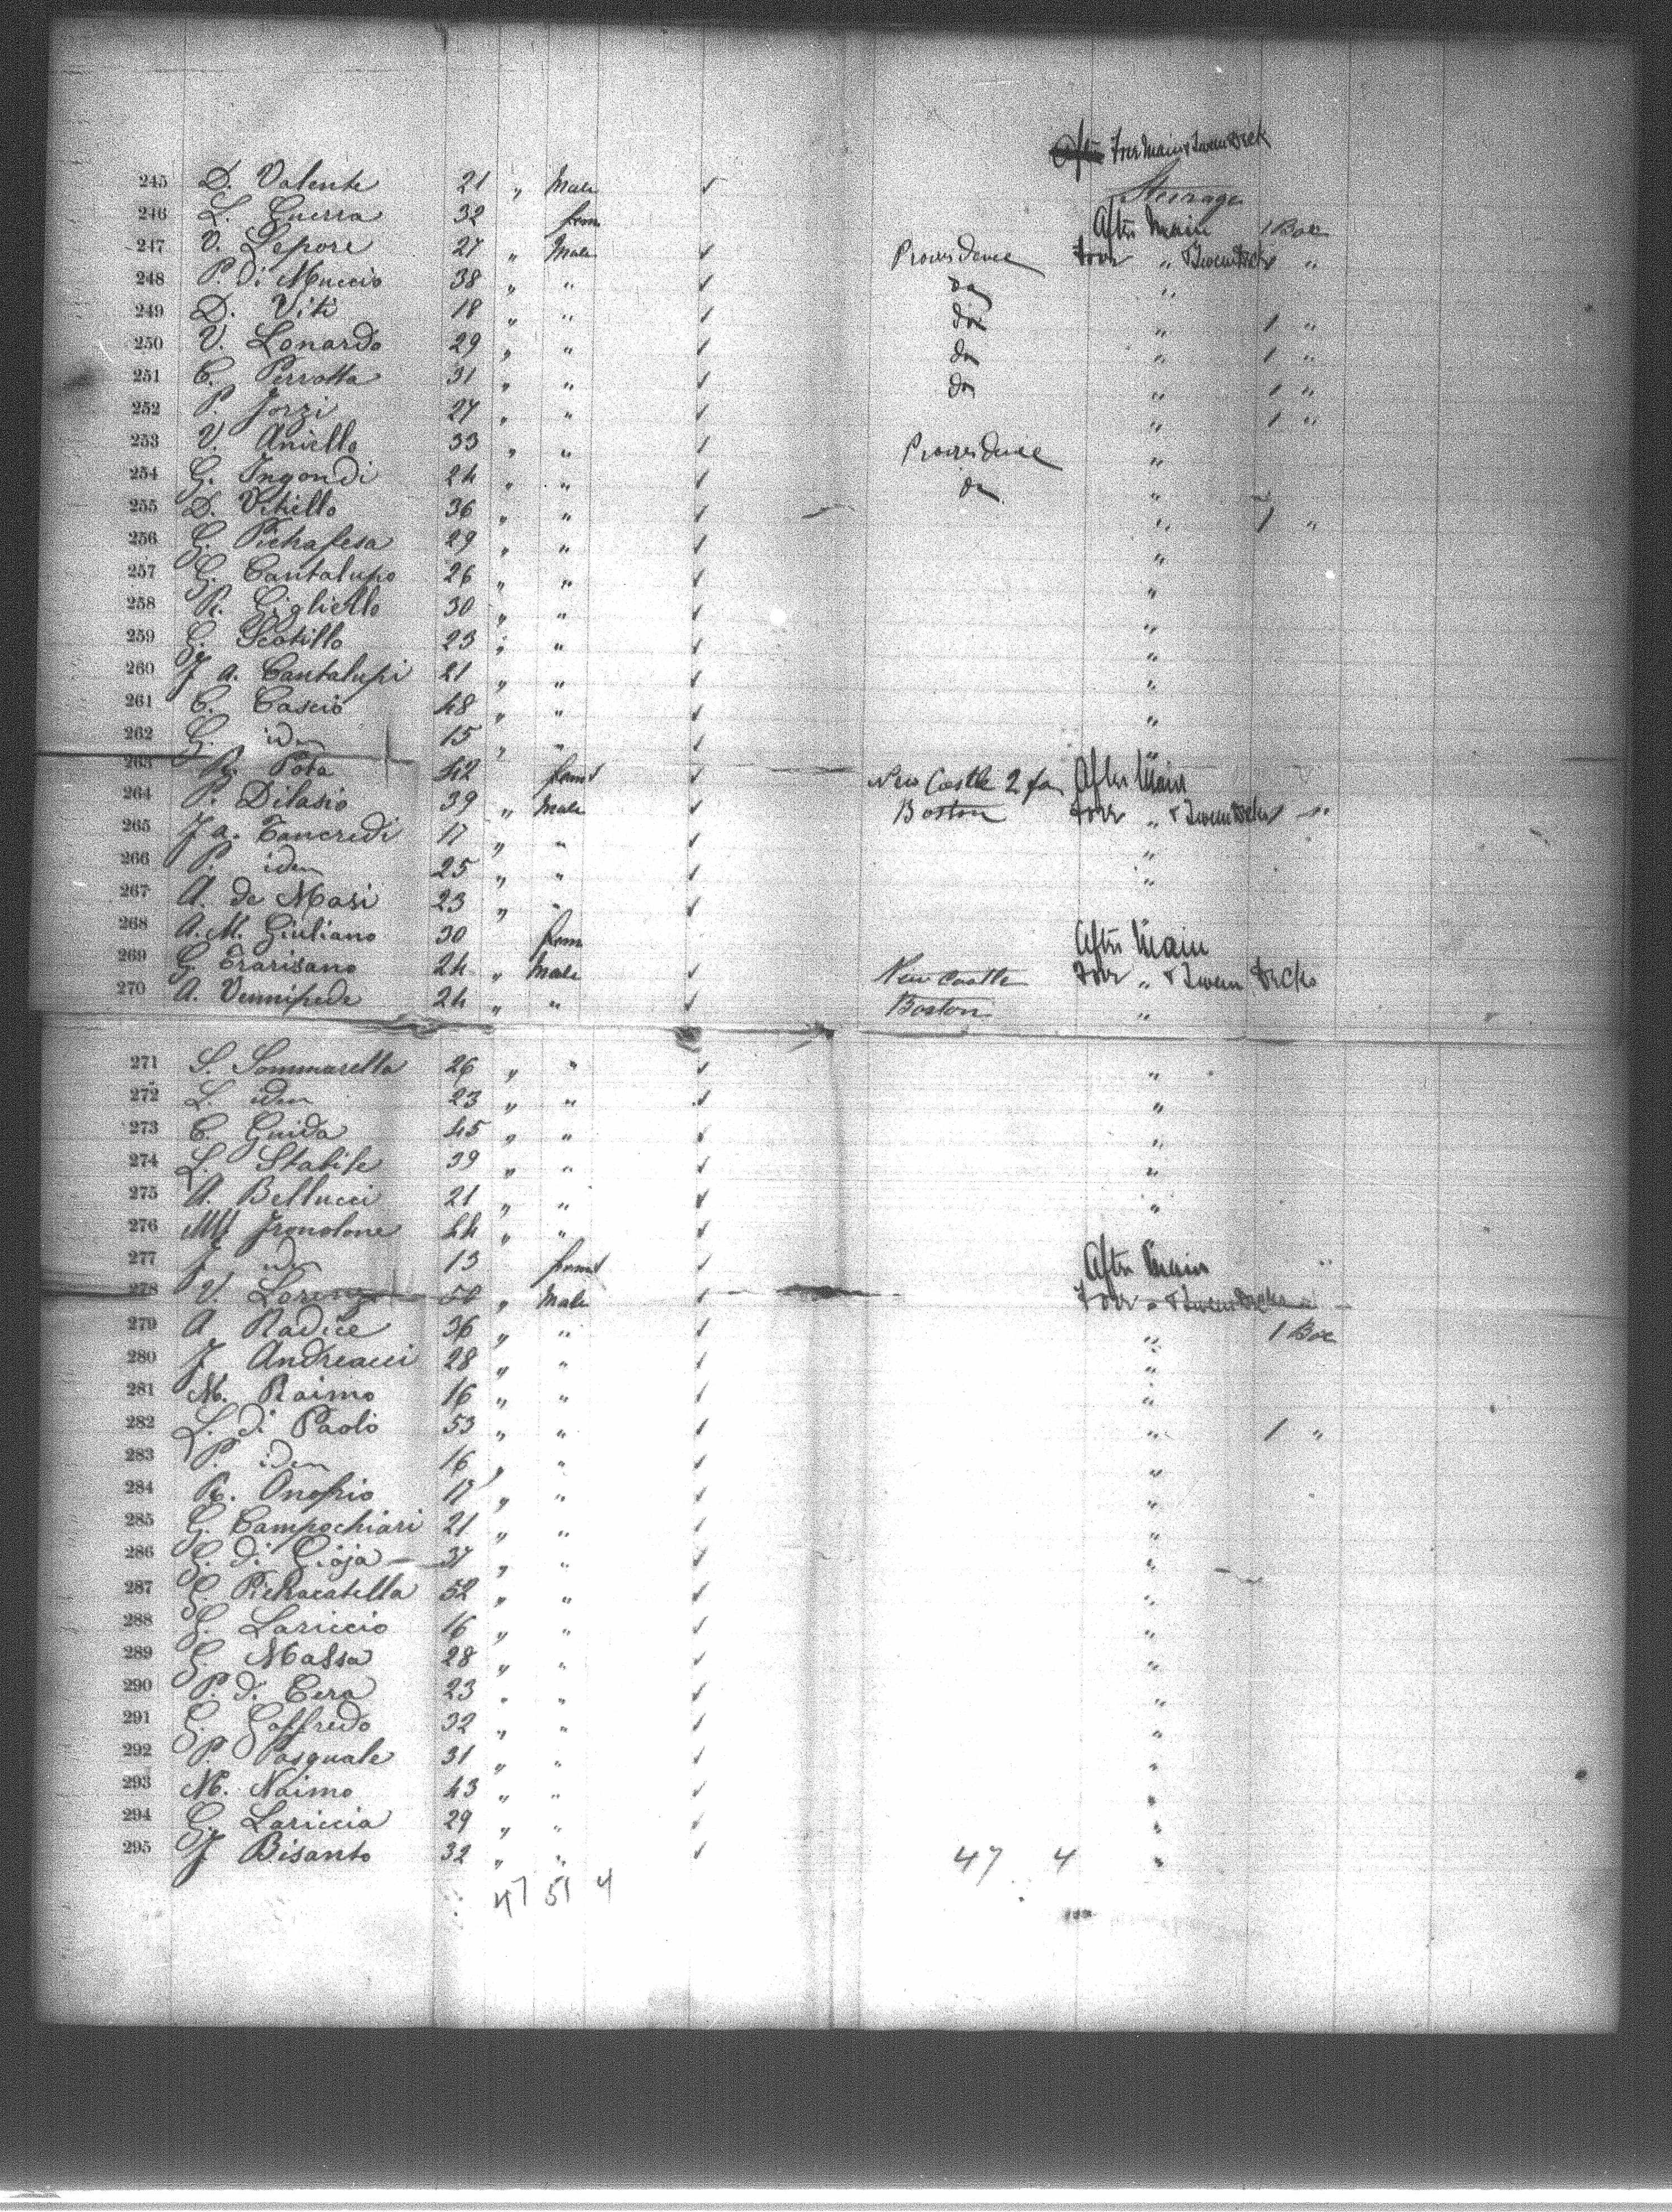 After Forr Main & Tween Deck
245 D. Valente 21 " Male Steerage
246 L. Guerra 32 fem After Main 1 Box
247 V. Lepore 27 " Male Providence Forr " & Tween Decks 1 "
248 P. di Muccio 38 " " do "
249 D. Viti 18 " " do " 1 "
250 V. Lonardo 29 " " do " 1 "
251 C. Perrotta 31 " " do " 1 "
252 P. Jorzi 27 " " " 1 "
253 V. Aniello 33 " " Providence "
254 G. Ingondi 24 " " do "
255 D. Vitillo 36 " " " 1 "
256 G. Pietrafesa 29 " " "
257 G. Cantalupo 26 " " "
258 R. Gigliello 30 " " "
259 G. Scotillo 23 " " "
260 J A. Cantalupi 21 " " "
261 C. Cascio 48 " " "
262 G. idem 15 " " "
263 R. Pota 42 fem New Castle 2 fa After Main
264 P. Dilasio 39 " Male Boston Forr " & Tween Decks 1 "
265 J a. Tancredi 17 " " "
266 P. idem 25 " " "
267 A. de Masi 23 " "
268 A. M. Giuliano 30 fem After Main
269 G Erarisano 24 " Male New Castle Forr " & Tween Decks
270 A. Vennipede 24 " " Boston "
271 S. Sommarella 26 " " "
272 L. idem 23 " " "
273 C. Guida 45 " " "
274 L. Stabile 39 " " "
275 A. Bellucci 21 " " "
276 M. Jronolone 44 " "
277 J. idem 13 fem After Main "
278 V. Lorenzo 50 " Male Forr " & Tween Decks
279 A Radice 36 " " " 1 Box
280 J Andreacci 28 " " "
281 M. Raimo 16 " " "
282 L. di Paolo 53 " " " 1 "
283 P. idem 16 " " "
284 R. Onofrio 17 " " "
285 G. Campochiari 21 " " "
286 G. di Gioja 37 " " "
287 G. Pietracatella 52 " " "
288 G. Lariccio 16 " " "
289 G. Massa 28 " " "
290 P. di Cera 23 " " "
291 G. Goffredo 32 " " "
292 P. Pasquale 31 " " "
293 M. Naimo 43 " " "
294 G. Lariccia 29 " " "
295 J Bisanto 32 " " 47 4 "
47 51 4